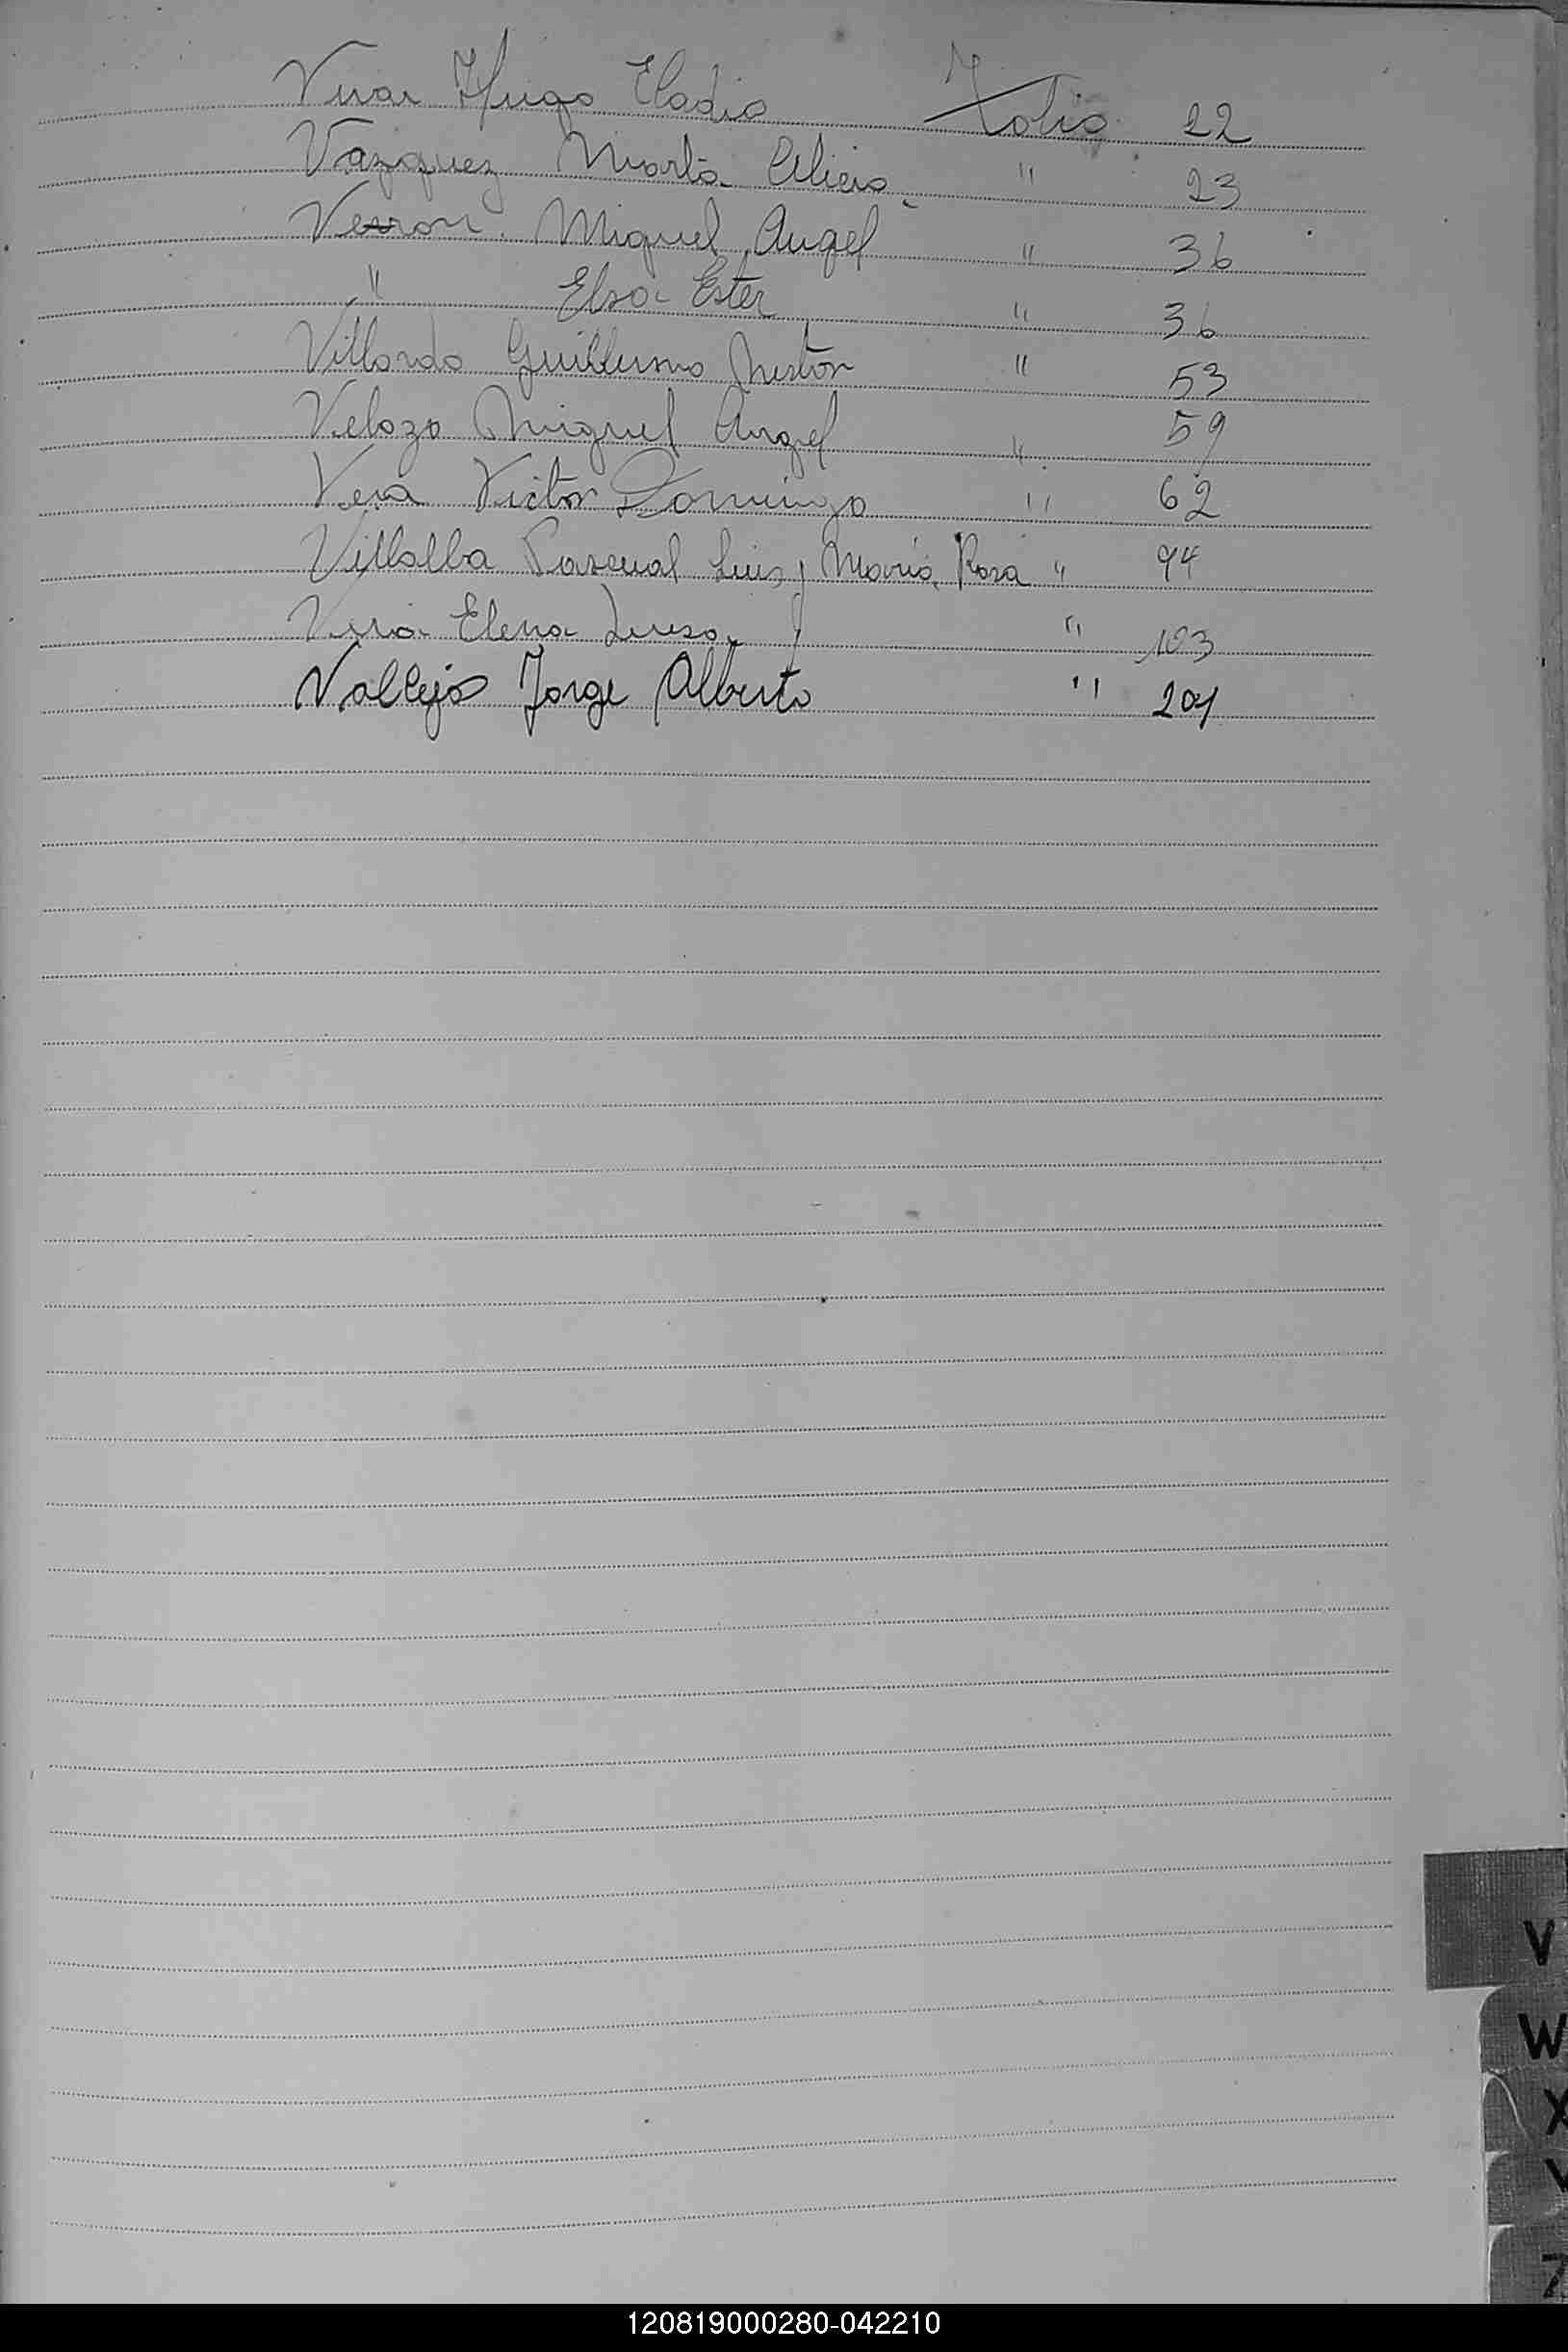 Vivar Hugo Eladio Folio 22
Vazquez Marta Alicia " 23
Verron Miguel Angel " 36
" Elsa Ester " 36
Villordo Guillermo Nestor " 53
Velozo Miguel Angel " 59
Vera Victor Domingo " 62
Villalba Pascual Luis y Maria Rosa " 94
Elena Luisa " 103
Vallejos Jorge Alberto " 201
V
W
X
Y
Z
120819000280-042210